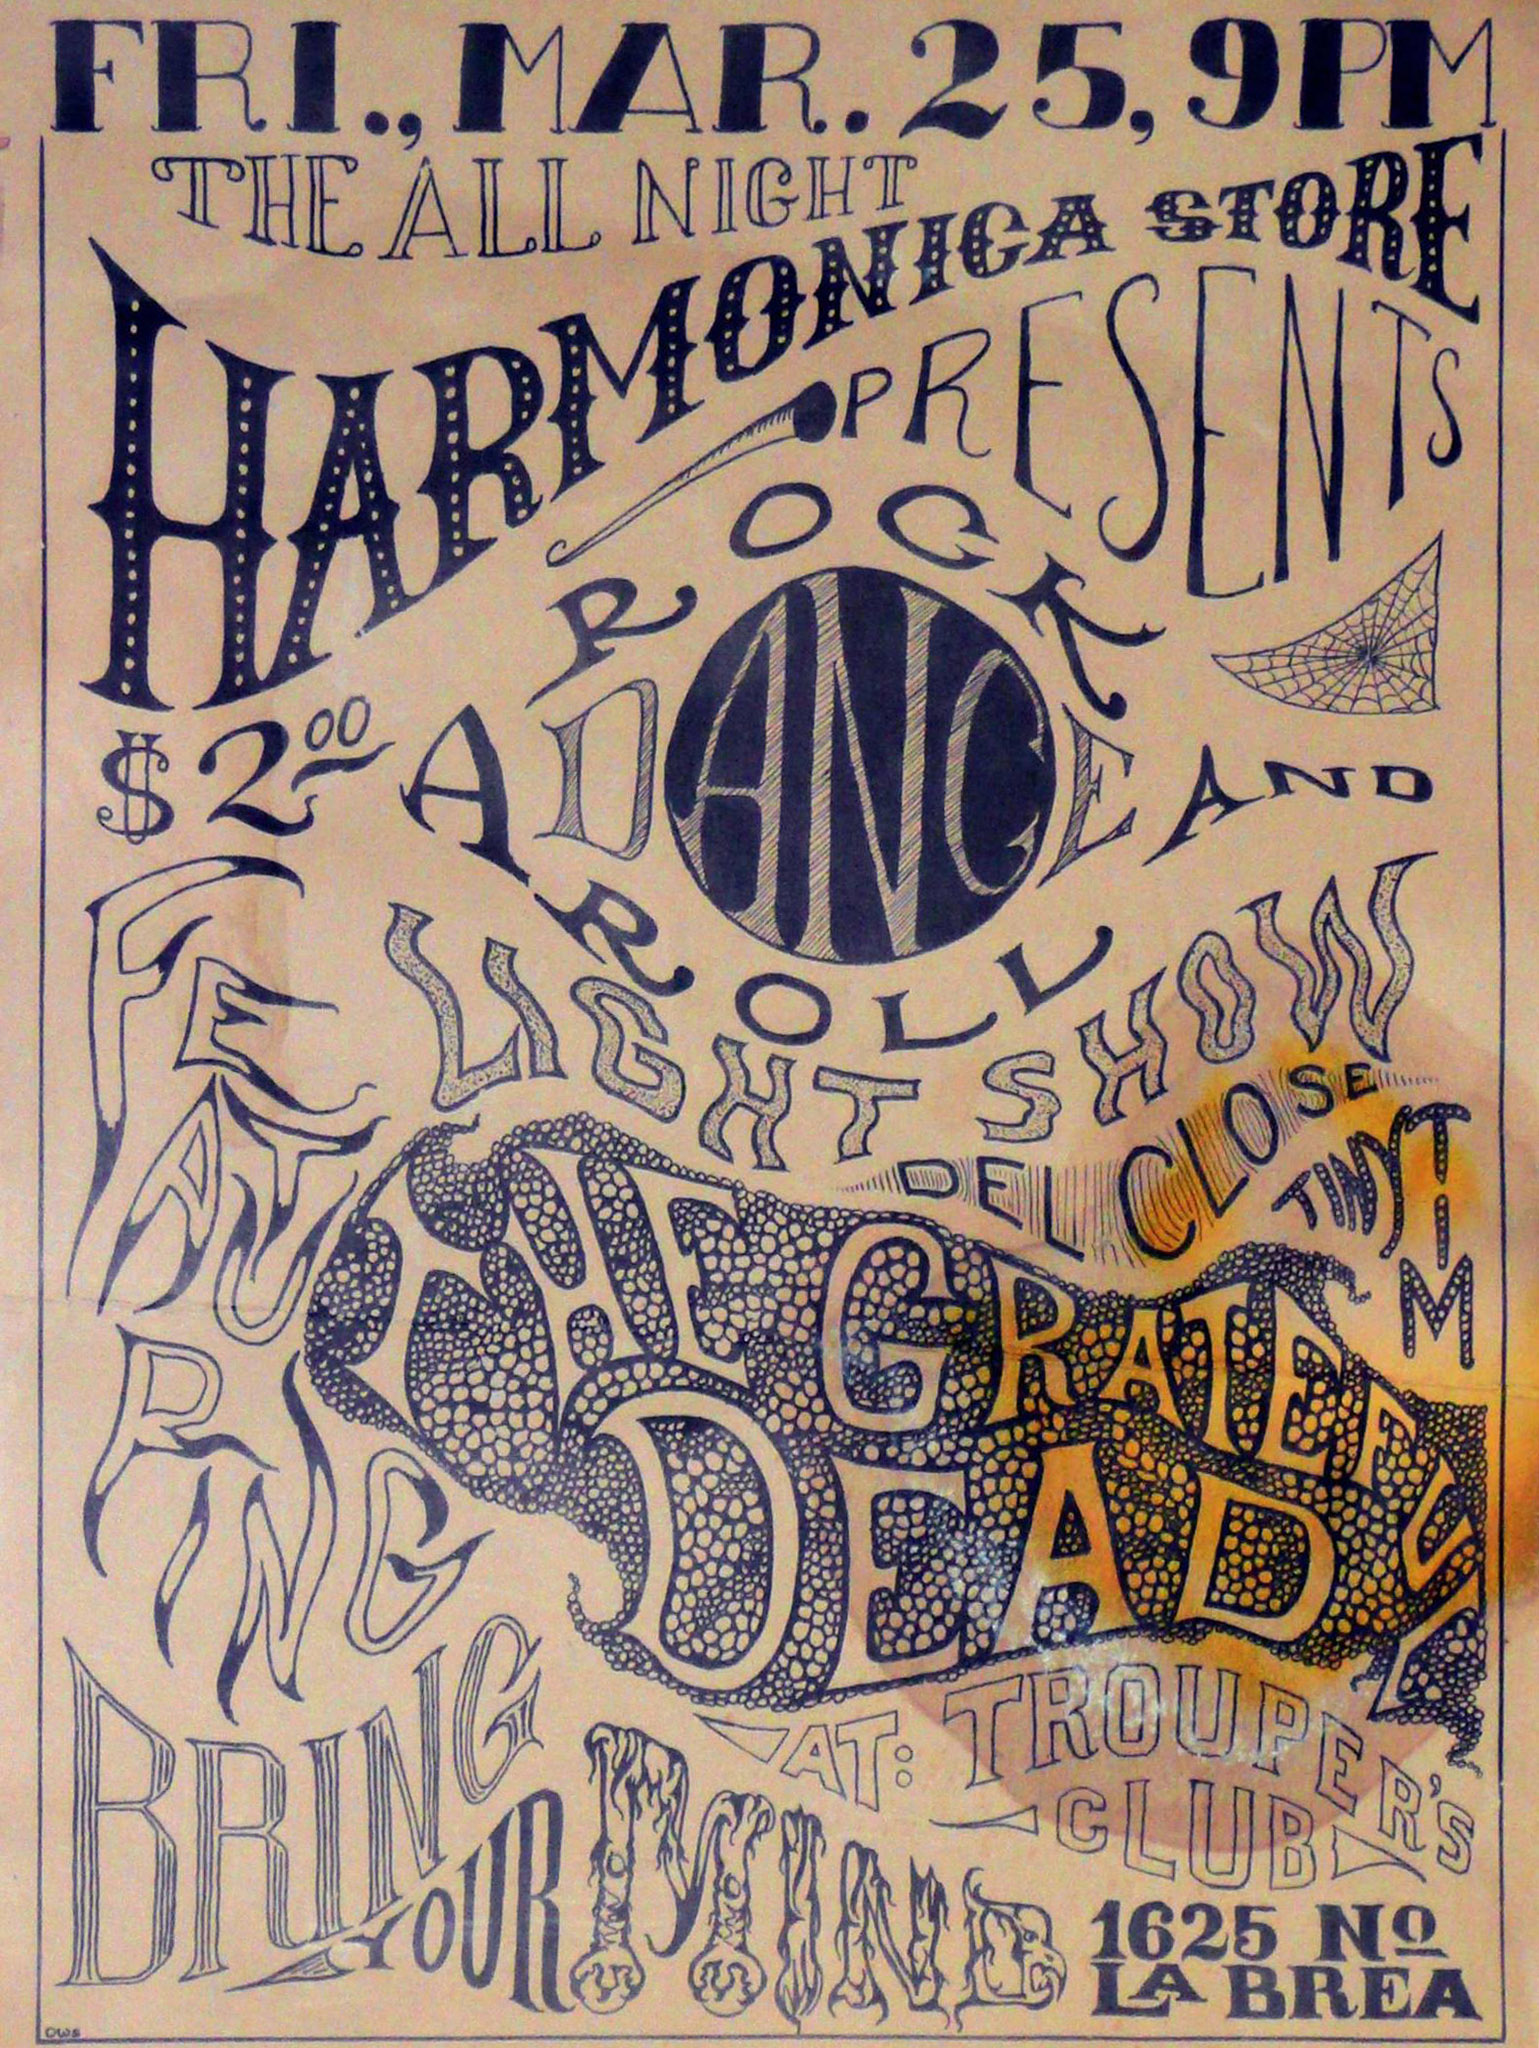 FRI., MAR. 25, 9PM
THE ALL NIGHT
HARMONICA STORE
PRESENTS
$2.00
A ROCK AND ROLL
DANCE
AND
LIGHT SHOW
FEATURING
DEL CLOSE
TINY TIM
THE GRATEFUL
DEAD
AT: TROUPER'S
CLUB
BRING
YOUR MIND
1625 NO
LA BREA
OWS